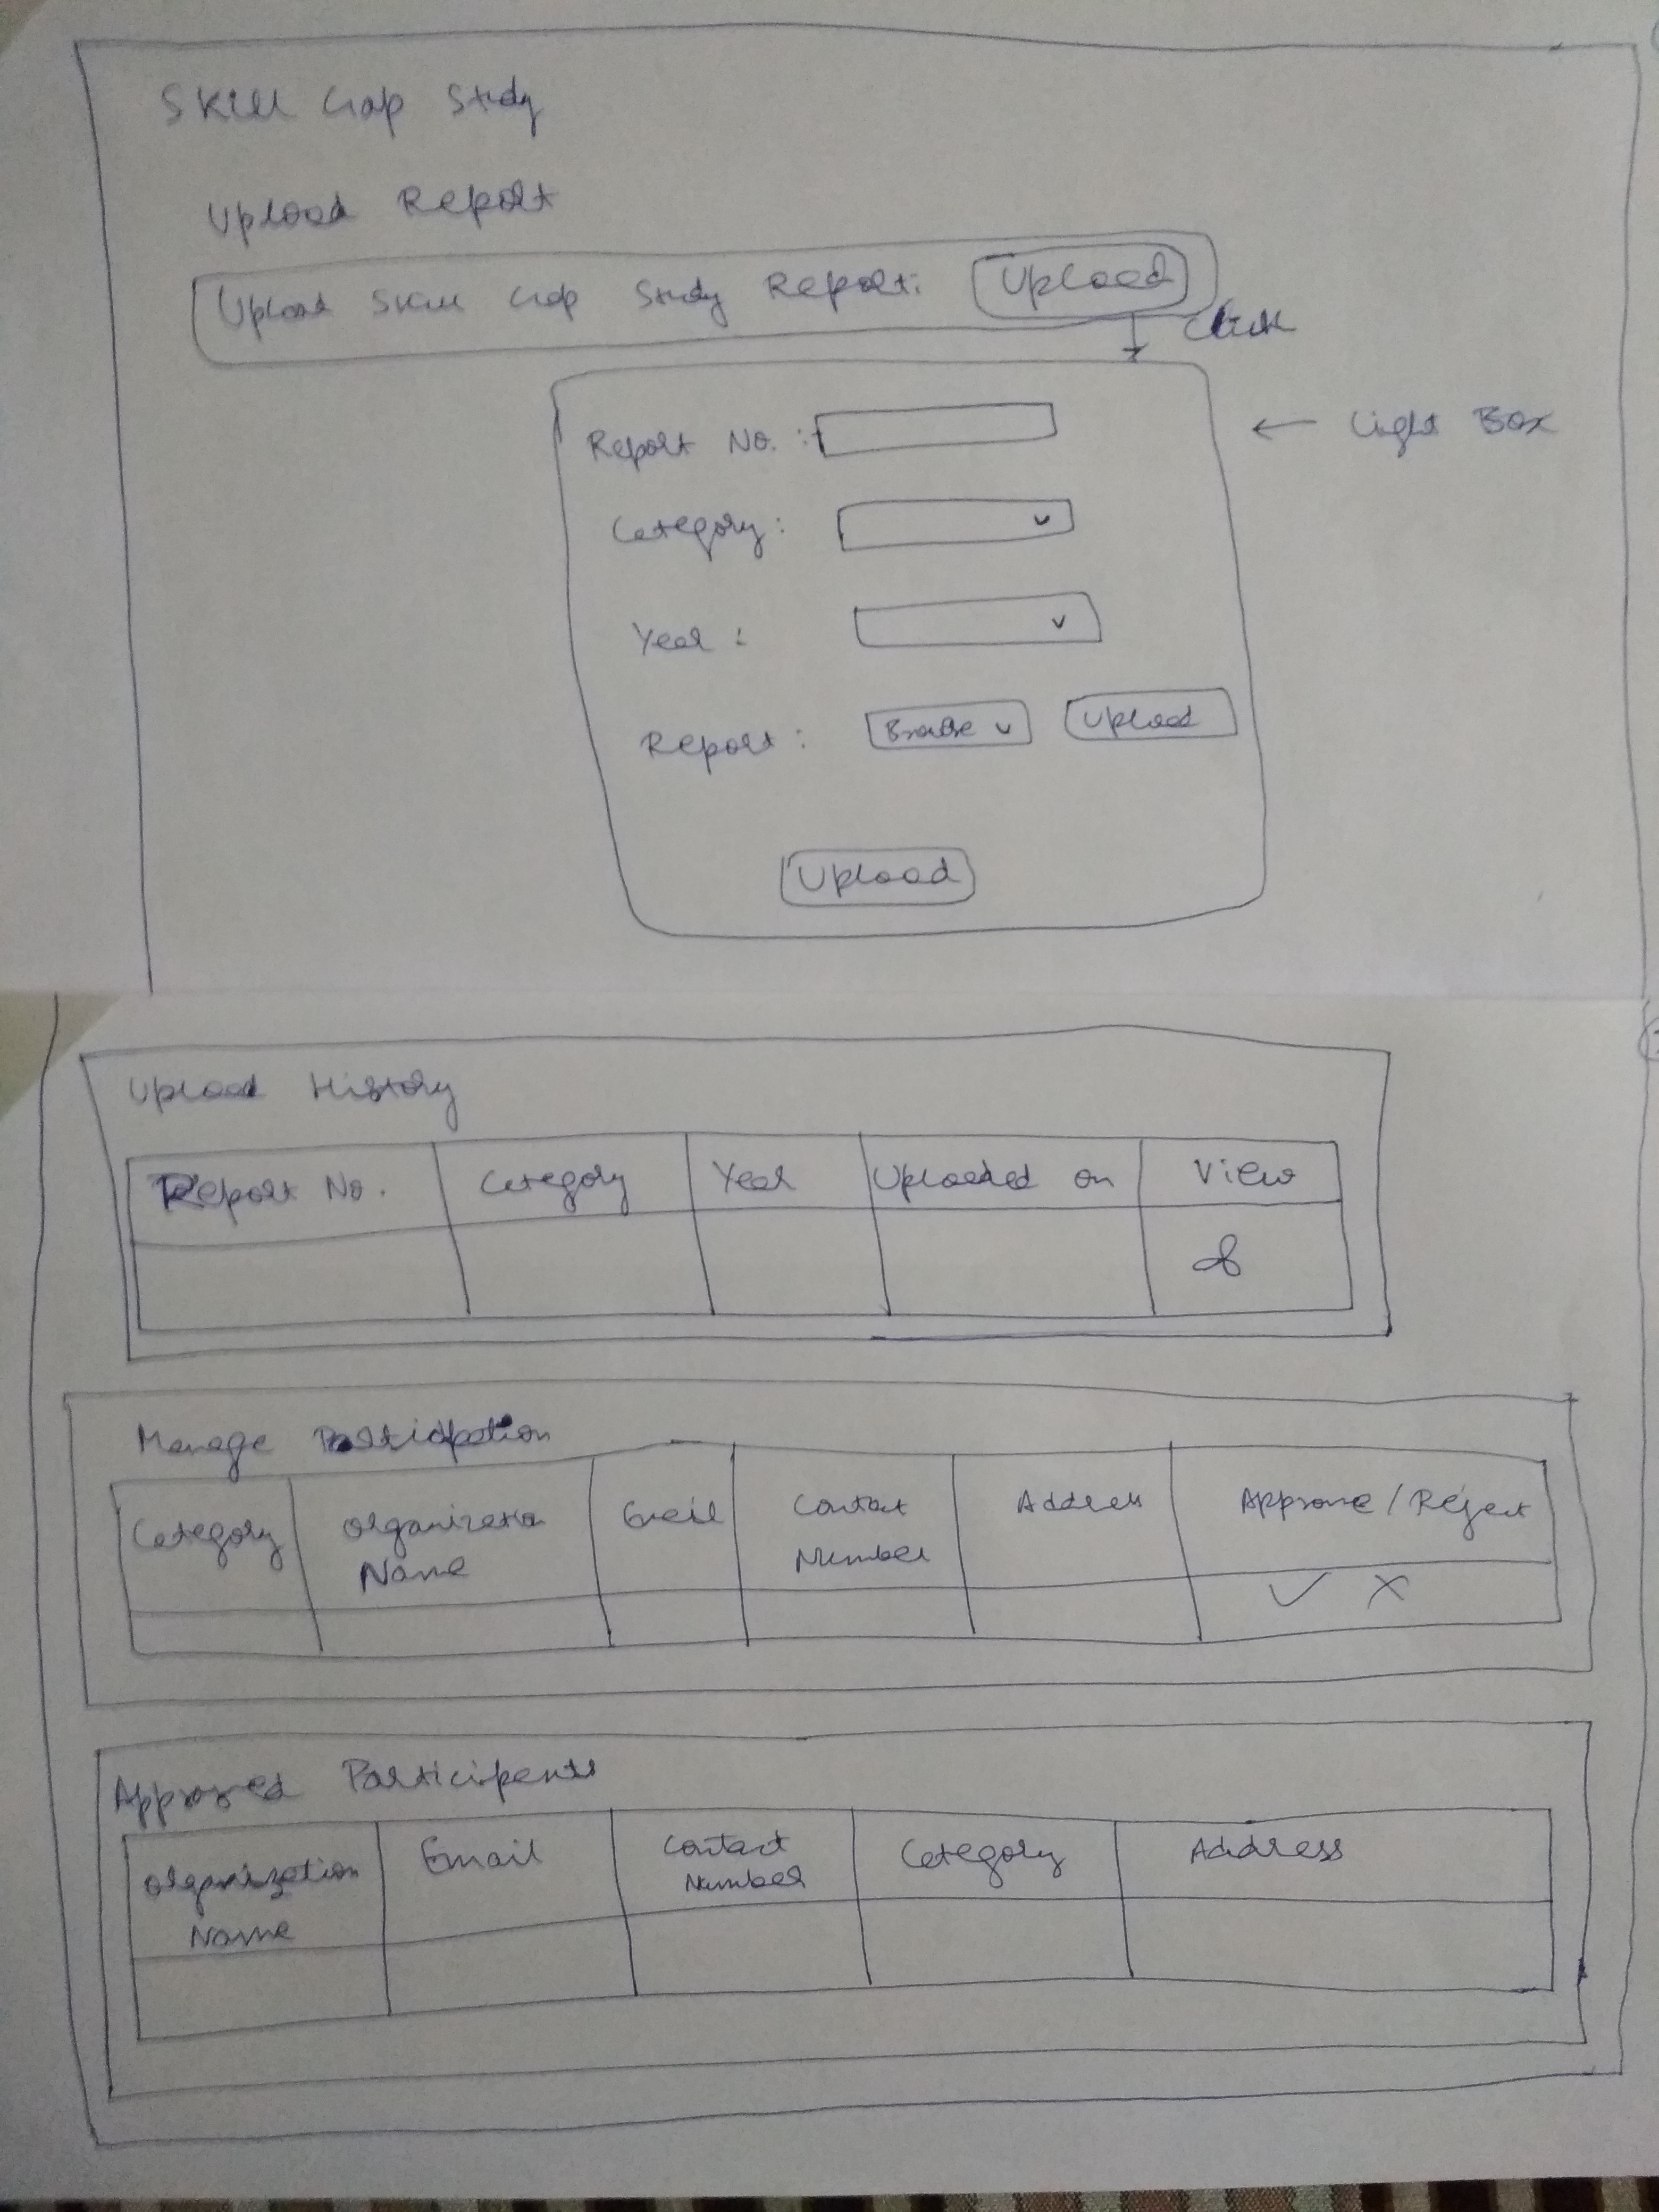 Skill Gap Study
Upload Report
Upload Skill Gap Study Report: Upload
Click
Report No. :
Light Box
Category:
Year :
Report: Browse Upload
Upload
Upload History
Report No. Category Year Uploaded on View
Manage Participation
Category Organization Name Email Contact Number Address Approve/Reject
✓ X
Approved Participants
Organization Name Email Contact Number Category Address